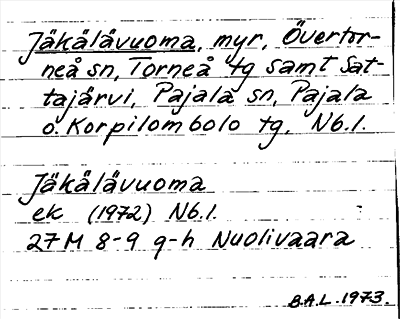 Jäkälävuoma, myr, Övertor-
neå sn, Torneå tg samt Sat-
tajärvi, Pajala sn, Pajala
o. Korpilombolo tg, Nb.l.
Jäkälävuoma
ek (1972) Nb.l.
27M 8-9 g-h Nuolivaara
B.A.L. 1973.